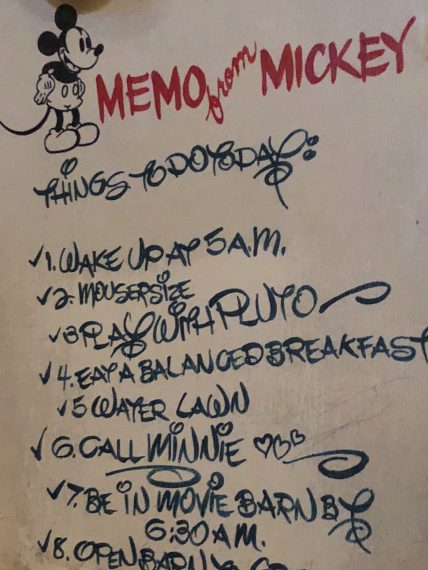 MEMO from MICKEY
THINGS TO DO TODAY:
✓1. WAKE UP AT 5 A.M.
✓2. MOUSERSIZE
✓3 PLAY WITH PLUTO
✓4. EAT A BALANCED BREAKFAST
✓5 WATER LAWN
✓6. CALL MINNIE ♡♡♡
✓7. BE IN MOVIE BARN BY
6:30 A.M.
✓8. OPEN BARN